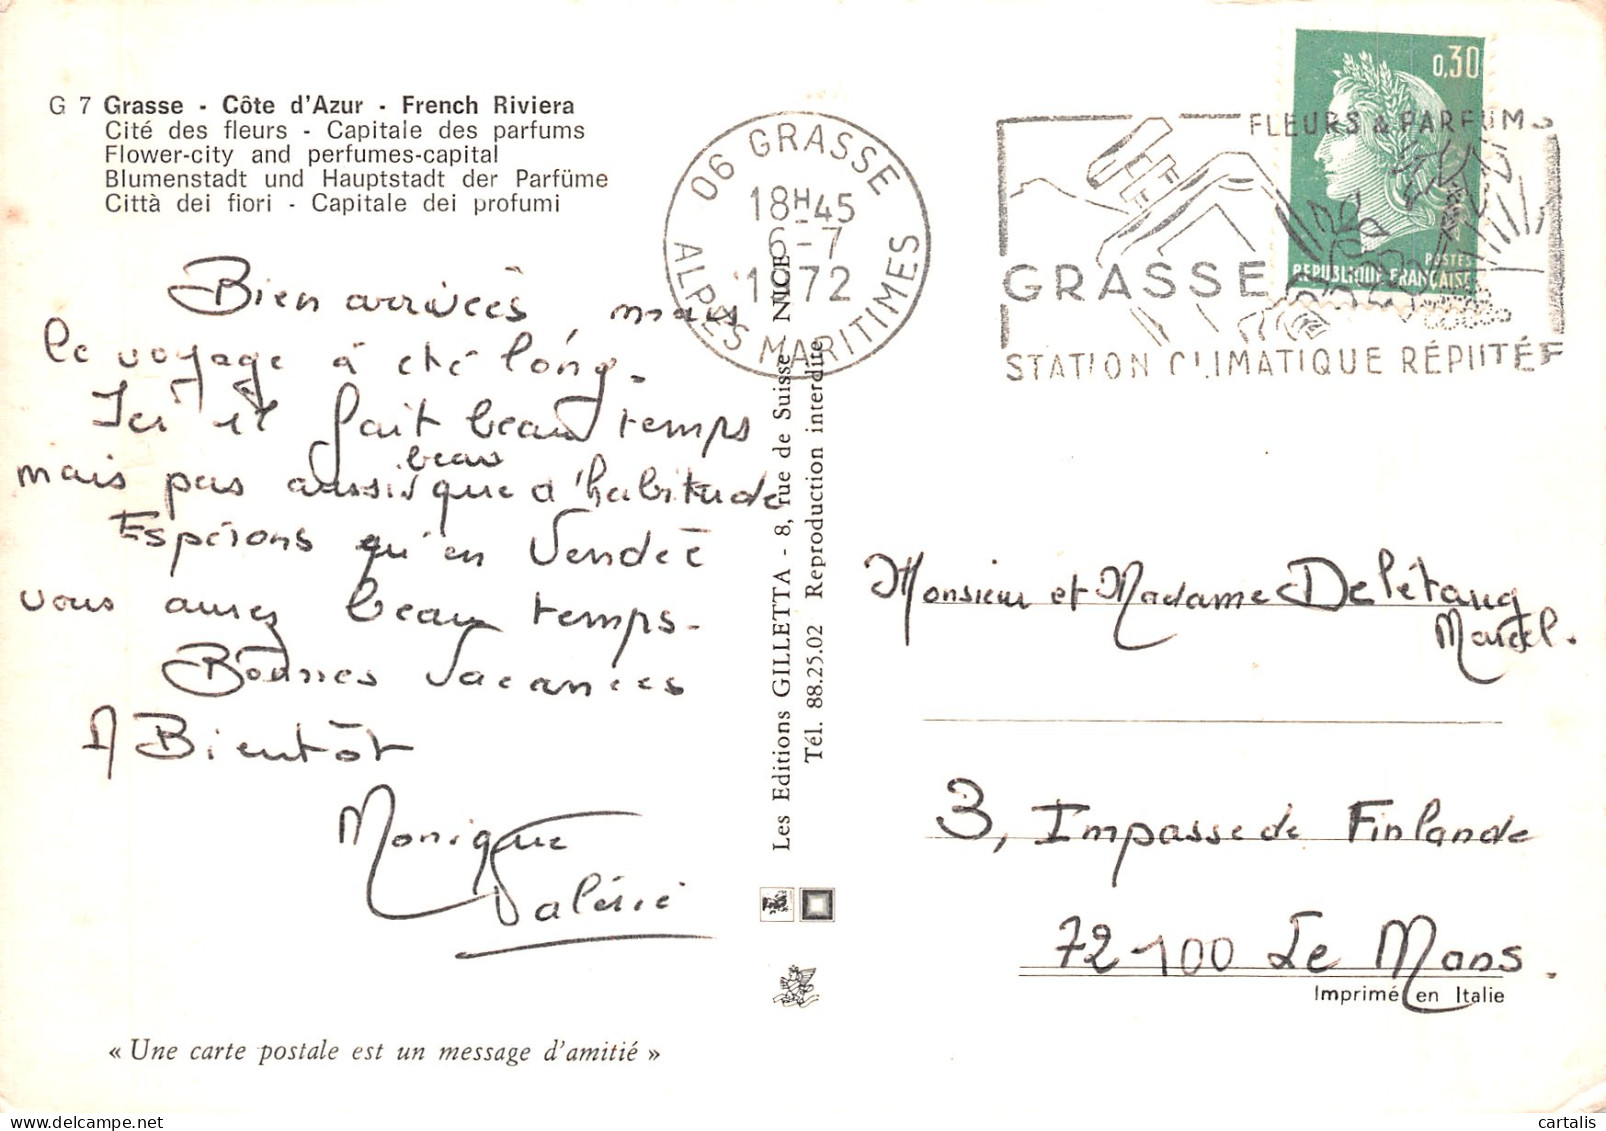 G 7 Grasse - Côte d'Azur - French Riviera
Cité des fleurs - Capitale des parfums
Flower-city and perfumes-capital
Blumenstadt und Hauptstadt der Parfüme
Città dei fiori - Capitale dei profumi
Bien arrivées mais
le voyage à été long.
Ici il fait beau temps
beau
mais pas aussi que d'habitude
Espérons qu'en Vendée
vous aurez beau temps.
Bonnes Vacances
A Bientôt
Monique
Valérie
« Une carte postale est un message d'amitié »
06 GRASSE
18H45
6-7
1972
ALPES MARITIMES
Les Editions GILLETTA - 8, rue de Suisse NICE
Tél. 88.25.02 Reproduction interdite
0,30
POSTES
REPUBLIQUE FRANÇAISE
FLEURS & PARFUMS
GRASSE
STATION CLIMATIQUE RÉPUTÉE
Monsieur et Madame Delétang
Marcel.
3, Impasse de Finlande
72-100 Le Mans.
Imprimé en Italie
cartalis